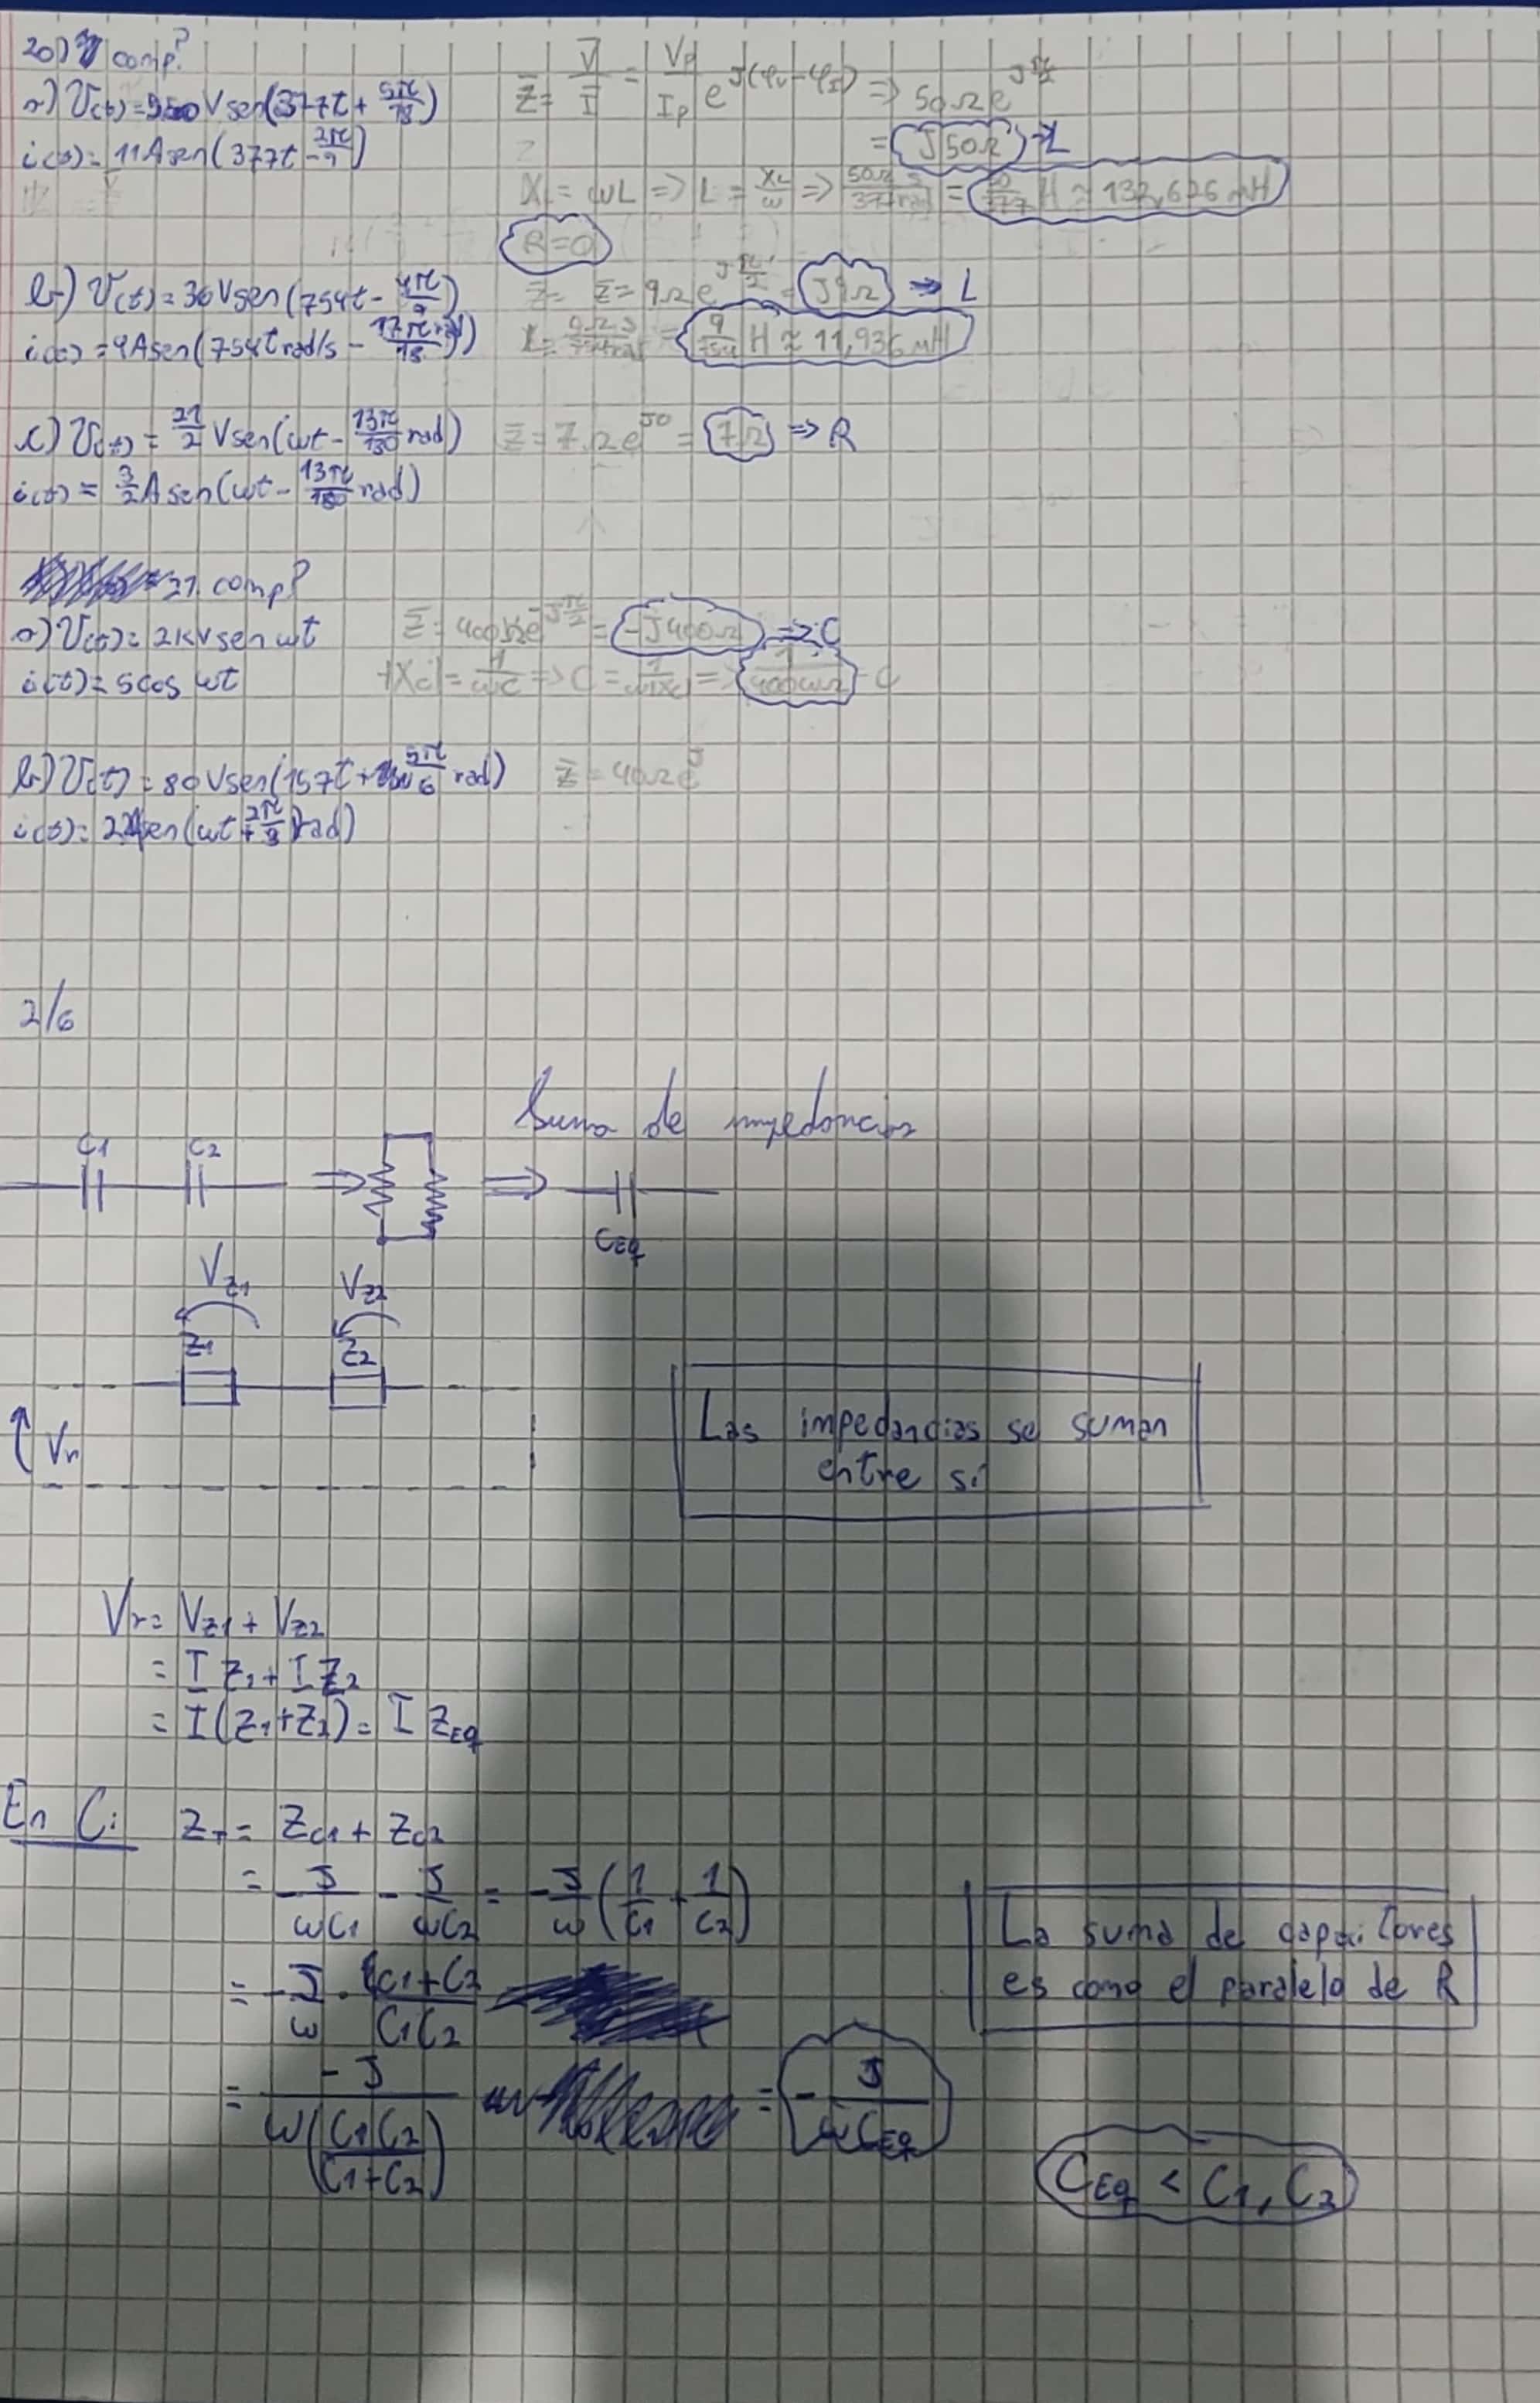 20) comp?
a) V(t) = 550 V sen(377t + 5π/18)
i(t) = 11 A sen(377t - 2π/9)
Z̄ = V̄/Ī = Vp/Ip e^J(φv-φI) => 50Ω e^Jπ/2
= J50Ω → L
XL = ωL => L = XL/ω => = 50/377 H ≈ 132,626 mH
R=0
b) V(t) = 36 V sen(754t - 4π/9)
i(t) = 4 A sen(754t rad/s - 17π rad/18)
Z̄ = Z̄ = 9Ω e^Jπ/2 = J9Ω => L
= 9/754 H ≈ 11,936 mH
c) V(t) = 21/2 V sen(ωt - 13π/180 rad)
i(t) = 3/2 A sen(ωt - 13π/180 rad)
Z̄ = 7Ω e^J0 = 7Ω => R
21. comp?
a) V(t) = 2kV sen ωt
i(t) = 5 cos ωt
Z̄ = 400Ω e^-Jπ/2 = -J400Ω => C
|Xc| = 1/ωC => C = 1/ω|Xc| => 1/400ωΩ C
b) V(t) = 80 V sen(157t + 5π/6 rad)
i(t) = 2 A sen(ωt + 2π/9 rad)
Z̄ = 40Ω e^J
2/6
Suma de impedancias
C1 C2 => => CEq
VZ1 VZ2
Z1 Z2
Vr
Las impedancias se suman
entre sí
Vr = VZ1 + VZ2
= I Z1 + I Z2
= I (Z1+Z2) = I ZEq
En C: ZT = ZC1 + ZC2
= -J/ωC1 - J/ωC2 = -J/ω (1/C1 + 1/C2)
= -J/ω · C1+C2/C1C2
= -J/ω(C1C2/C1+C2) = -J/ωCEq
La suma de capacitores
es como el paralelo de R
CEq < C1, C2